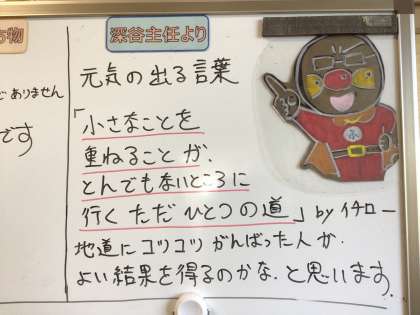 物
でありません
です
深谷主任より
元気の出る言葉
「小さなことを
重ねることが、
とんでもないところに
行くただひとつの道」byイチロー
地道にコツコツがんばった人が、
よい結果を得るのかな、と思います。
ふ